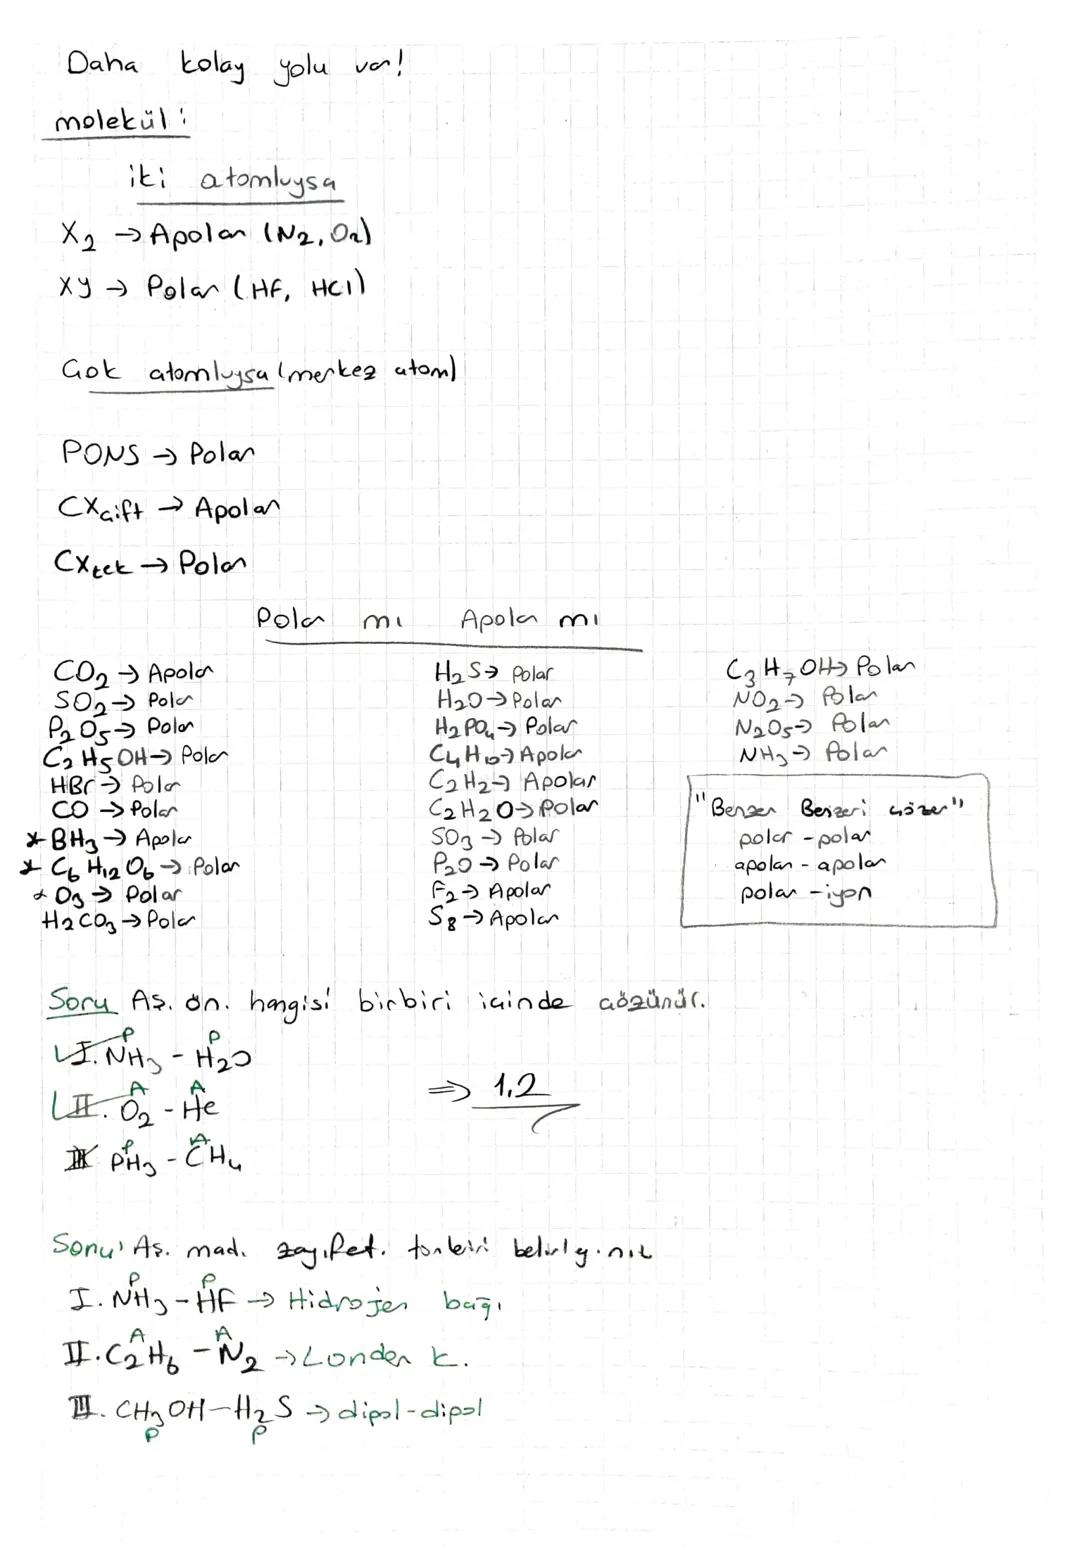 Daha kolay yolu var!
molekül:
iki atomluysa
X₂ → Apolar (N₂, O₂)
XY → Polar (HF, HCl)
Çok atomluysa (merkez atom)
PONS → Polar
CXçift → Apolar
CXtek → Polar
Polar mı Apolar mı
CO₂ → Apolar
SO₂ → Polar
P₂O₅ → Polar
C₂H₅OH → Polar
HBr → Polar
CO → Polar
* BH₃ → Apolar
* C₆H₁₂O₆ → Polar
* O₃ → Polar
H₂CO₃ → Polar
H₂S → Polar
H₂O → Polar
H₂PO₄ → Polar
C₄H₁₀ → Apolar
C₂H₂ → Apolar
C₂H₂O → Polar
SO₃ → Polar
P₂O → Polar
F₂ → Apolar
S₈ → Apolar
C₃H₇OH → Polar
NO₂ → Polar
N₂O₅ → Polar
NH₃ → Polar
"Benzer Benzeri çözer"
polar - polar
apolar - apolar
polar - iyon
Soru Aş. ön. hangisi birbiri içinde çözünür.
P P
I. NH₃ - H₂O
A A
II. O₂ - He
⇒ 1,2
P A
III PH₃ - CH₄
Soru Aş. mad. zayıf et. türlerini
P P
I. NH₃ - HF → Hidrojen bağı
A A
II. C₂H₆ - N₂ → London k.
III. CH₃OH - H₂S → dipol-dipol
P P